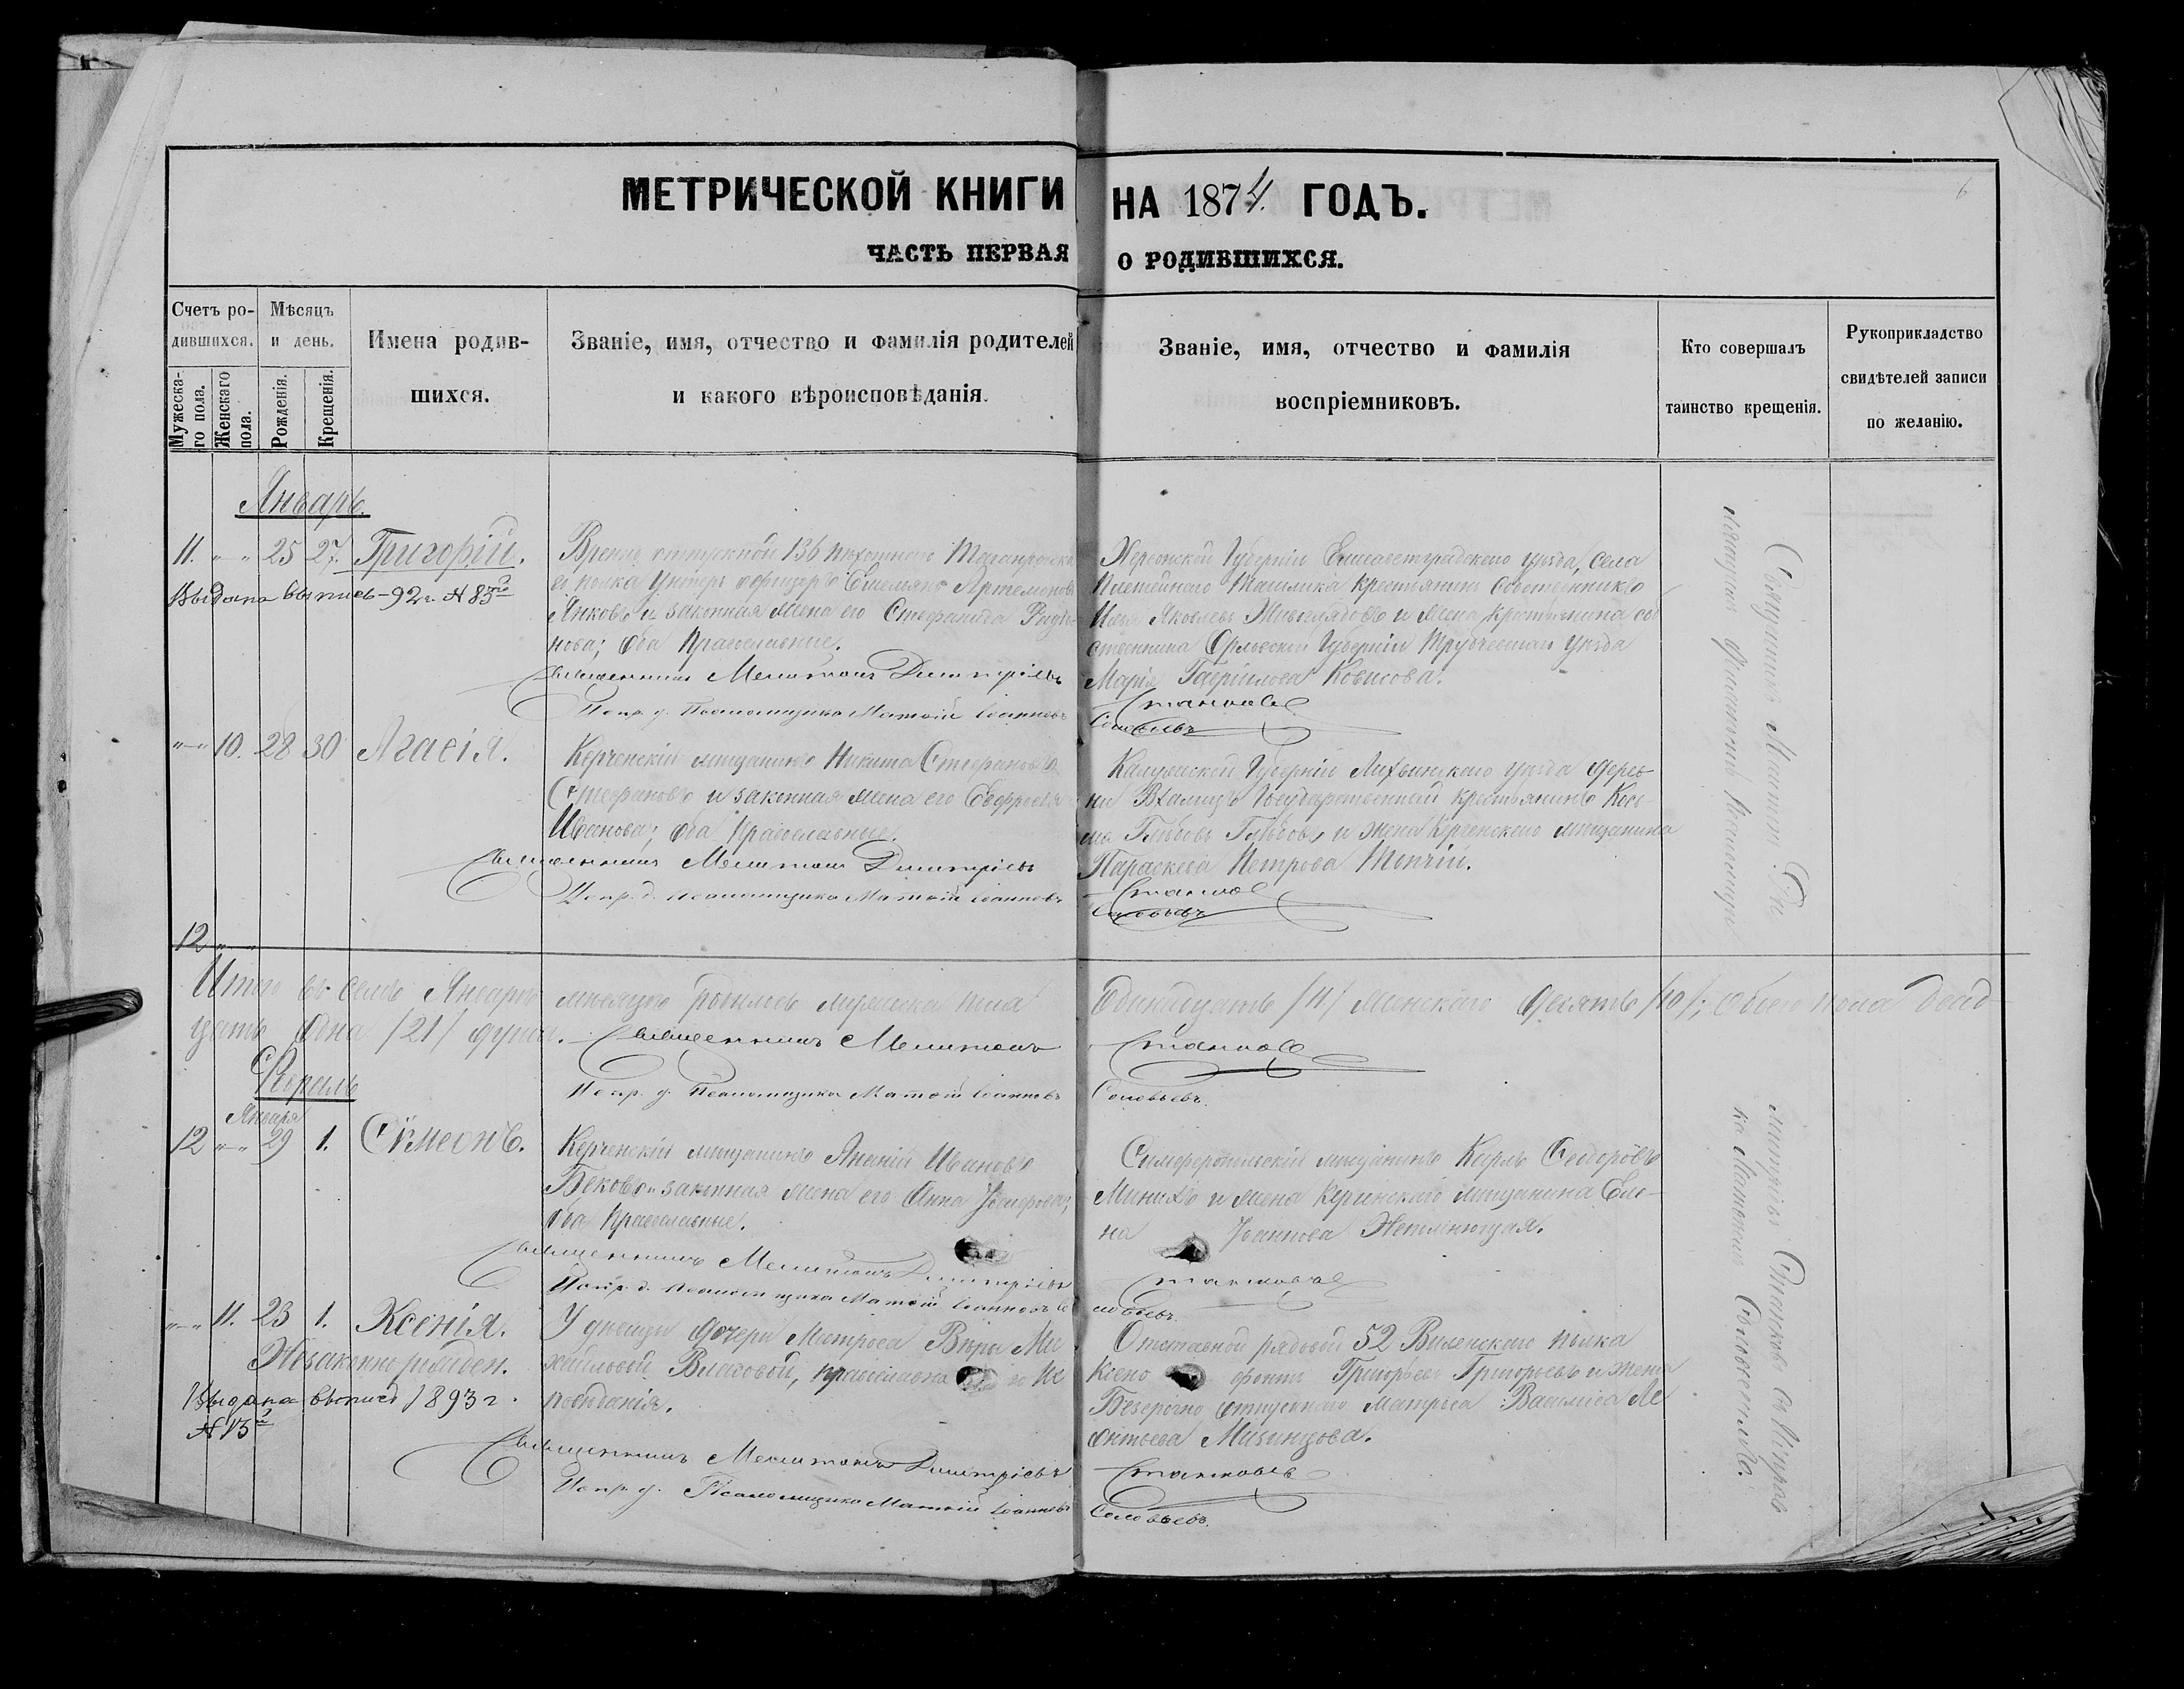 МЕТРИЧЕСКОЙ КНИГИ НА 1874 ГОДЪ.
ЧАСТЬ ПЕРВАЯ О РОДИВШИХСЯ.
Счетъ ро-
дившихся.
Мужеска-
го пола.
Женскаго
пола.
Мѣсяцъ
и день.
Рожденія.
Крещенія.
Имена родив-
шихся.
Званіе, имя, отчество и фамилія родителей
и какого вѣроисповѣданія.
Званіе, имя, отчество и фамилія
воспріемниковъ.
Кто совершалъ
таинство крещенія.
Рукоприкладство
свидѣтелей записи
по желанію.
6
Январь.
11. " " 25 27. Григорій.
Выдана выпись 92 г. № 83
отпускной 136 пѣхотнаго Таганрогска
го полка Унтеръ офицеръ Емельянъ Артемоновъ
Янковъ и законная жена его Стефанида
нова; оба Православные.
Священникъ Мелитонъ Димитріевъ
Испр. д. Псаломщика Матѳій Іоанновъ
Херсонской Губерніи Елисаветградскаго уѣзда, села
Ташлика крестьянинъ собственникъ
Илья Яковлевъ и жена крестьянина соб
ственника Орловской Губерніи Трубчевскаго уѣзда
Марія Гавриилова
Станковъ
Соловьевъ
" " 10. 28 30 Агаѳія.
Керченскій мѣщанинъ Никита Стефановъ
Стефановъ и законная жена его Евфросинія
Иванова; оба Православные.
Священникъ Мелитонъ Димитріевъ
Испр. д. Псаломщика Матѳій Іоанновъ
Калужской Губерніи Лихвинскаго уѣзда Дерев
ни Государственный крестьянинъ Кось
ма Глѣбовъ Глѣбовъ и жена Керченскаго мѣщанина
Параскева Петрова Топчій.
Станковъ
Соловьевъ
12 " "
Итого въ семъ Январѣ мѣсяцѣ родилось мужеска пола Одинадцать /11/ Женскаго Десять /10/; обоего пола двад
цать одна /21/ душа.
Священникъ Мелитонъ
Станковъ
Испр. д. Псаломщика Матѳій Іоанновъ
Соловьевъ.
Февраль
Января
12 " " 29 1. Сѵмеонъ.
Керченскій мѣщанинъ Ананій Ивановъ
Бековъ и законная жена его Анна
оба Православные.
Священникъ Мелитонъ Димитріевъ
Испр. д. Псаломщика Матѳій Іоанновъ Со
Симферопольскій мѣщанинъ Карпъ Ѳеодоровъ
и жена Керченскаго мѣщанина Еле-
на Іоаннова
Станковъ
ловьевъ.
" " 11. 23 1. Ксенія.
Незаконнорожден.
Выдана выпись 1893 г.
№ 13
У дѣвицы дочери Матроса Вѣры Ми
хайловой Влаховой, православна го ис
повѣданія.
Священникъ Мелитонъ Димитріевъ
Испр. д. Псаломщика Матѳій Іоанновъ
Отставной рядовой 52 Виленскаго полка
Ксено фонтъ Григорьевъ Григорьевъ и жена
Безсрочно отпускнаго Матроса Василиса Ле
онтьева
Станковъ
Соловьевъ.
Священникъ Мелитонъ Ди
митріевъ Станковъ съ
Псаломщи
ко Матѳіемъ Соловьевымъ.